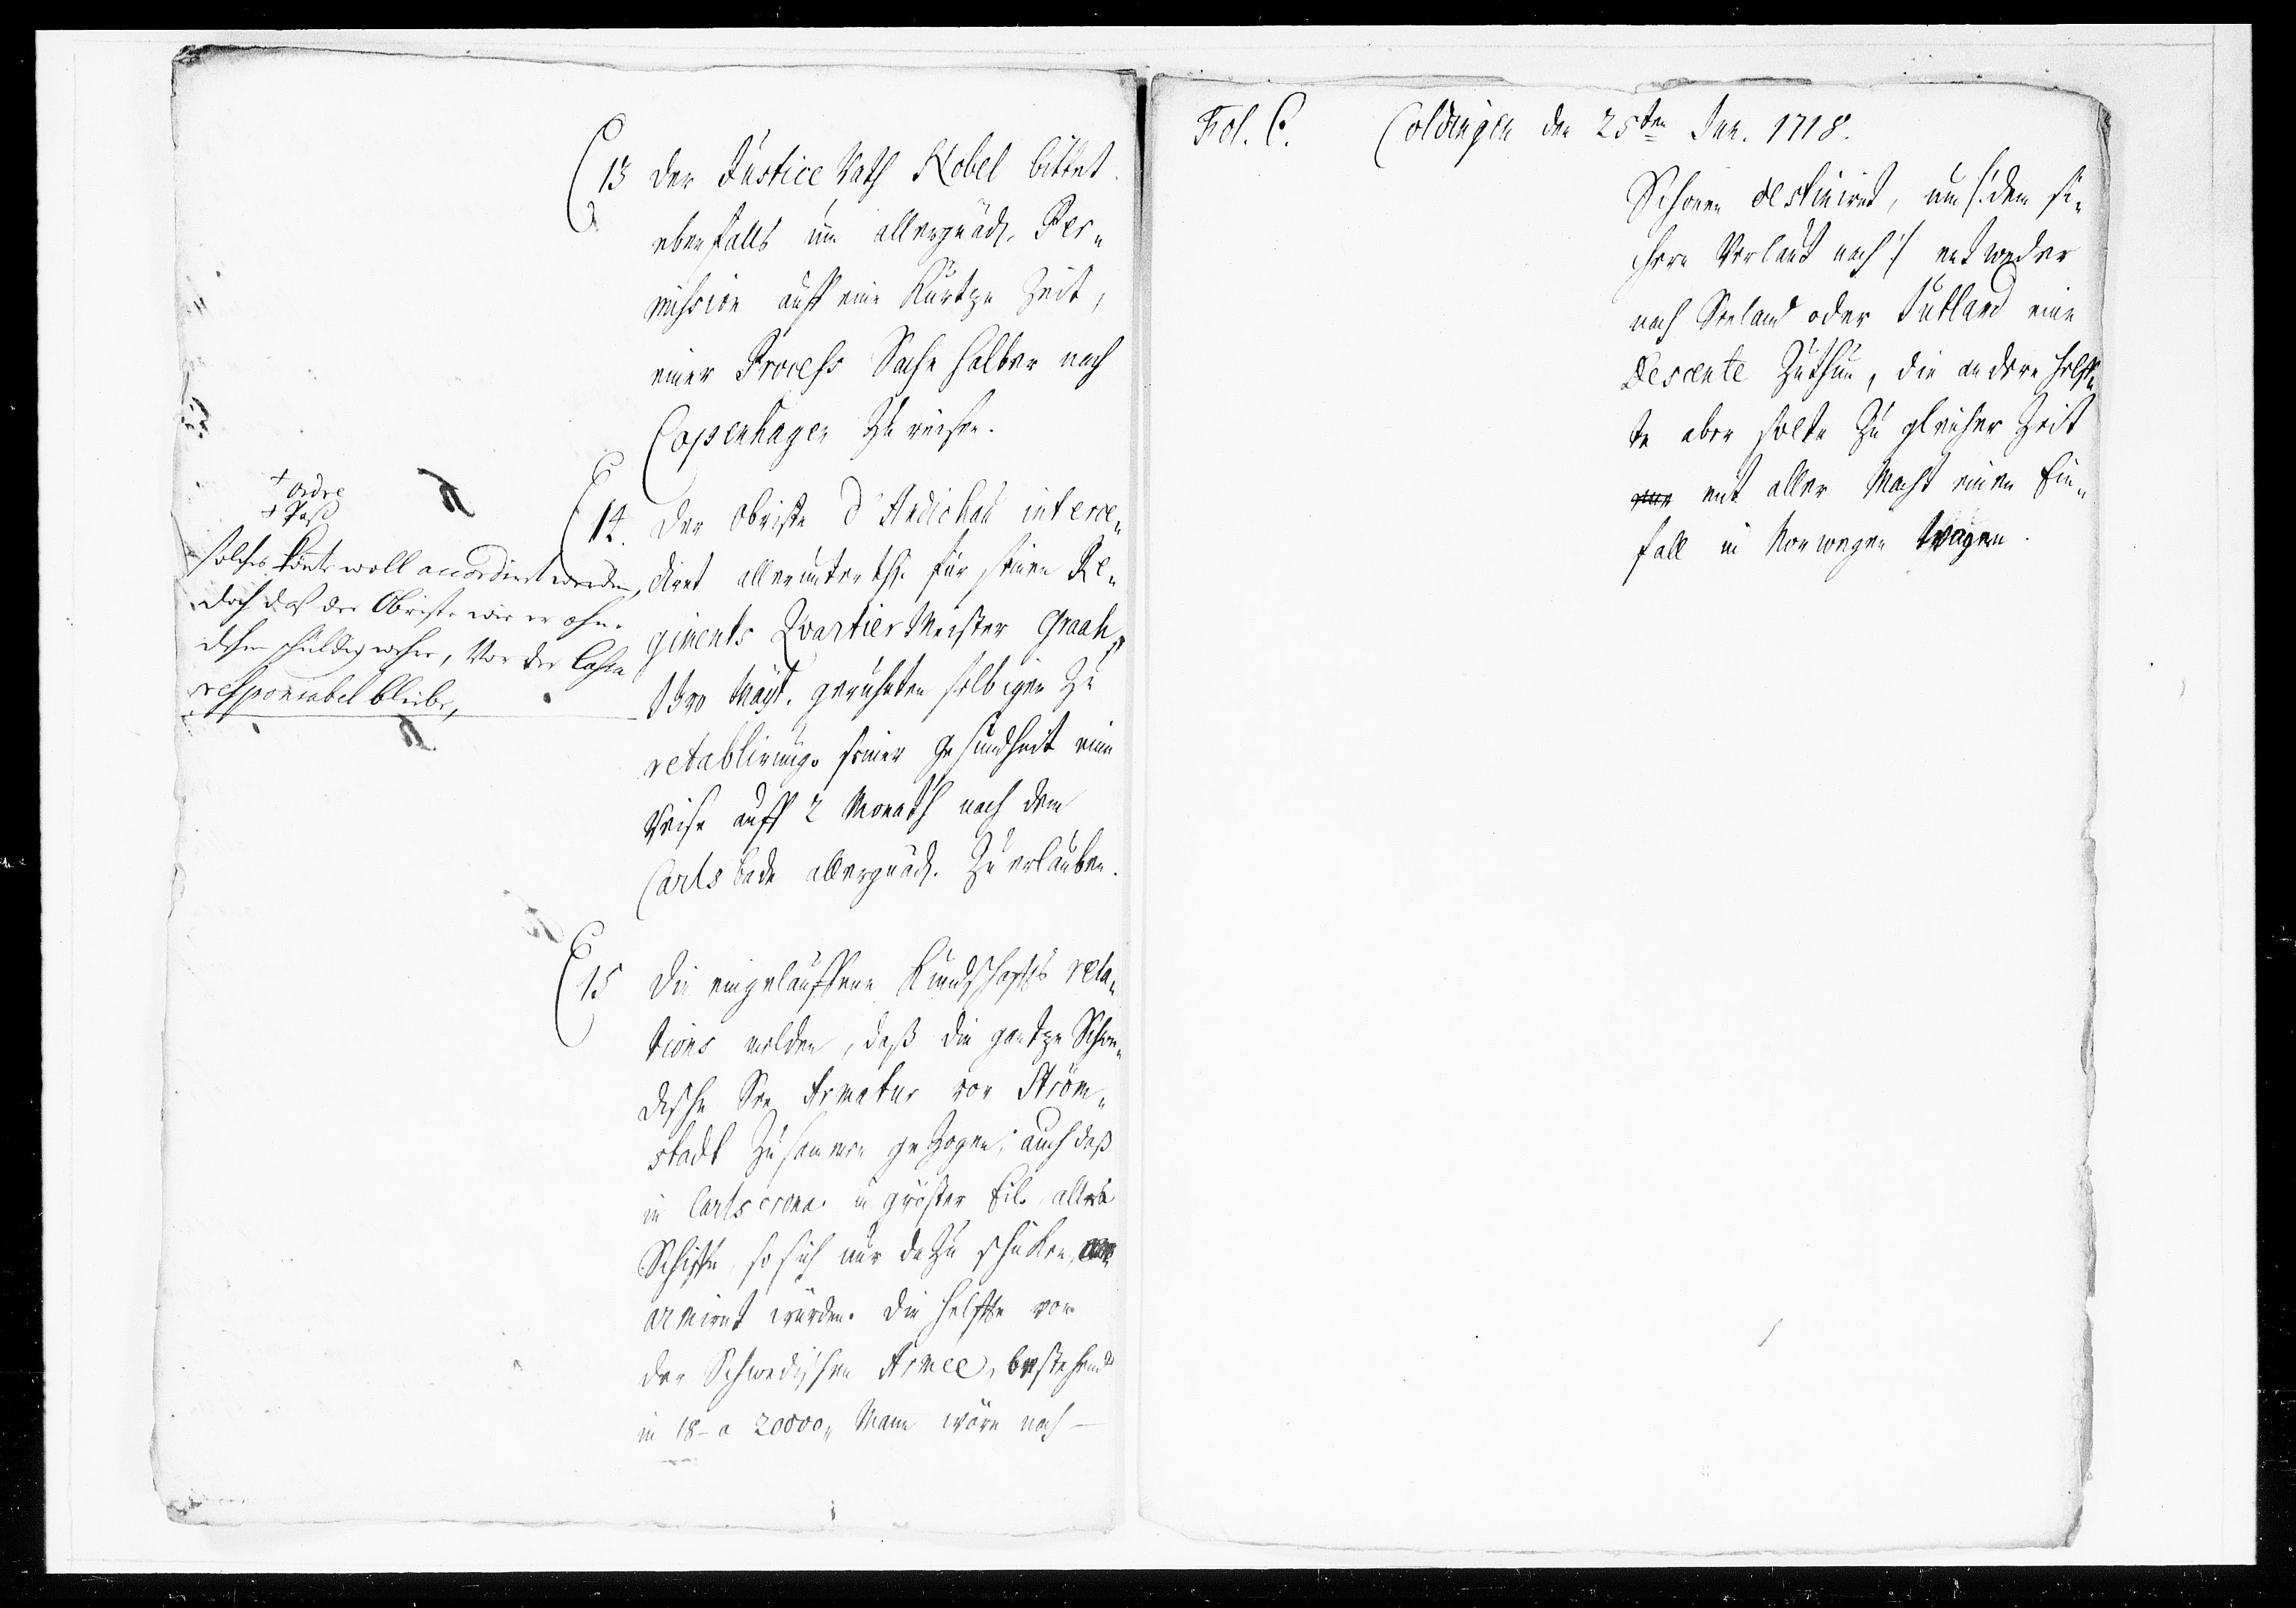 13 Der Justice Rath Kobel bittet
ebenfalls um allergnäd. Per„
mission auff eine Kurtze Zeit,
einer Process Sache halber nach
Copenhagen Zu reisen.
+ ordre
+ Pass
solches könte woll accordiret werden,
doch daß der Obriste wie er ohne
dehm schuldig wehre, Vor der Cassa
responsabel bleibe,
14. Der Obriste d'Andichau interce„
diret allerunterth. für seinen Re„
giments Quartier Meister Graah,
Ihro Mayt. geruheten selbigen Zu
retablirung seiner Gesundheit eine
Reise auff 2 Monath nach dem
Carls bade allergnäd. Zu erlauben.
15 Die eingelauffene Kundschaffts rela„
tions melden, daß die gantze Schwe„
dische See Armatur vor Ström„
stadt Zusammen gezogen, auch daß
in Carlscrona in gröster Eil alle
Schiffe, so sich nur dazu schicken,
armiret würden. Die helffte von
der Schwedischen Armee, bestehend
in 18- a 20000„ Mann wäre nach
Fol. C. Coldingen den 25ten Jan. 1718.
Schonen destiniret, um /: dem si„
chern Verlaut nach :/ entweder
nach Seeland oder Jutland eine
Descente Zuthun, die andere helff„
te aber solte Zu gleicher Zeit
mit aller Macht einen Ein„
fall in Norwegen wagen.